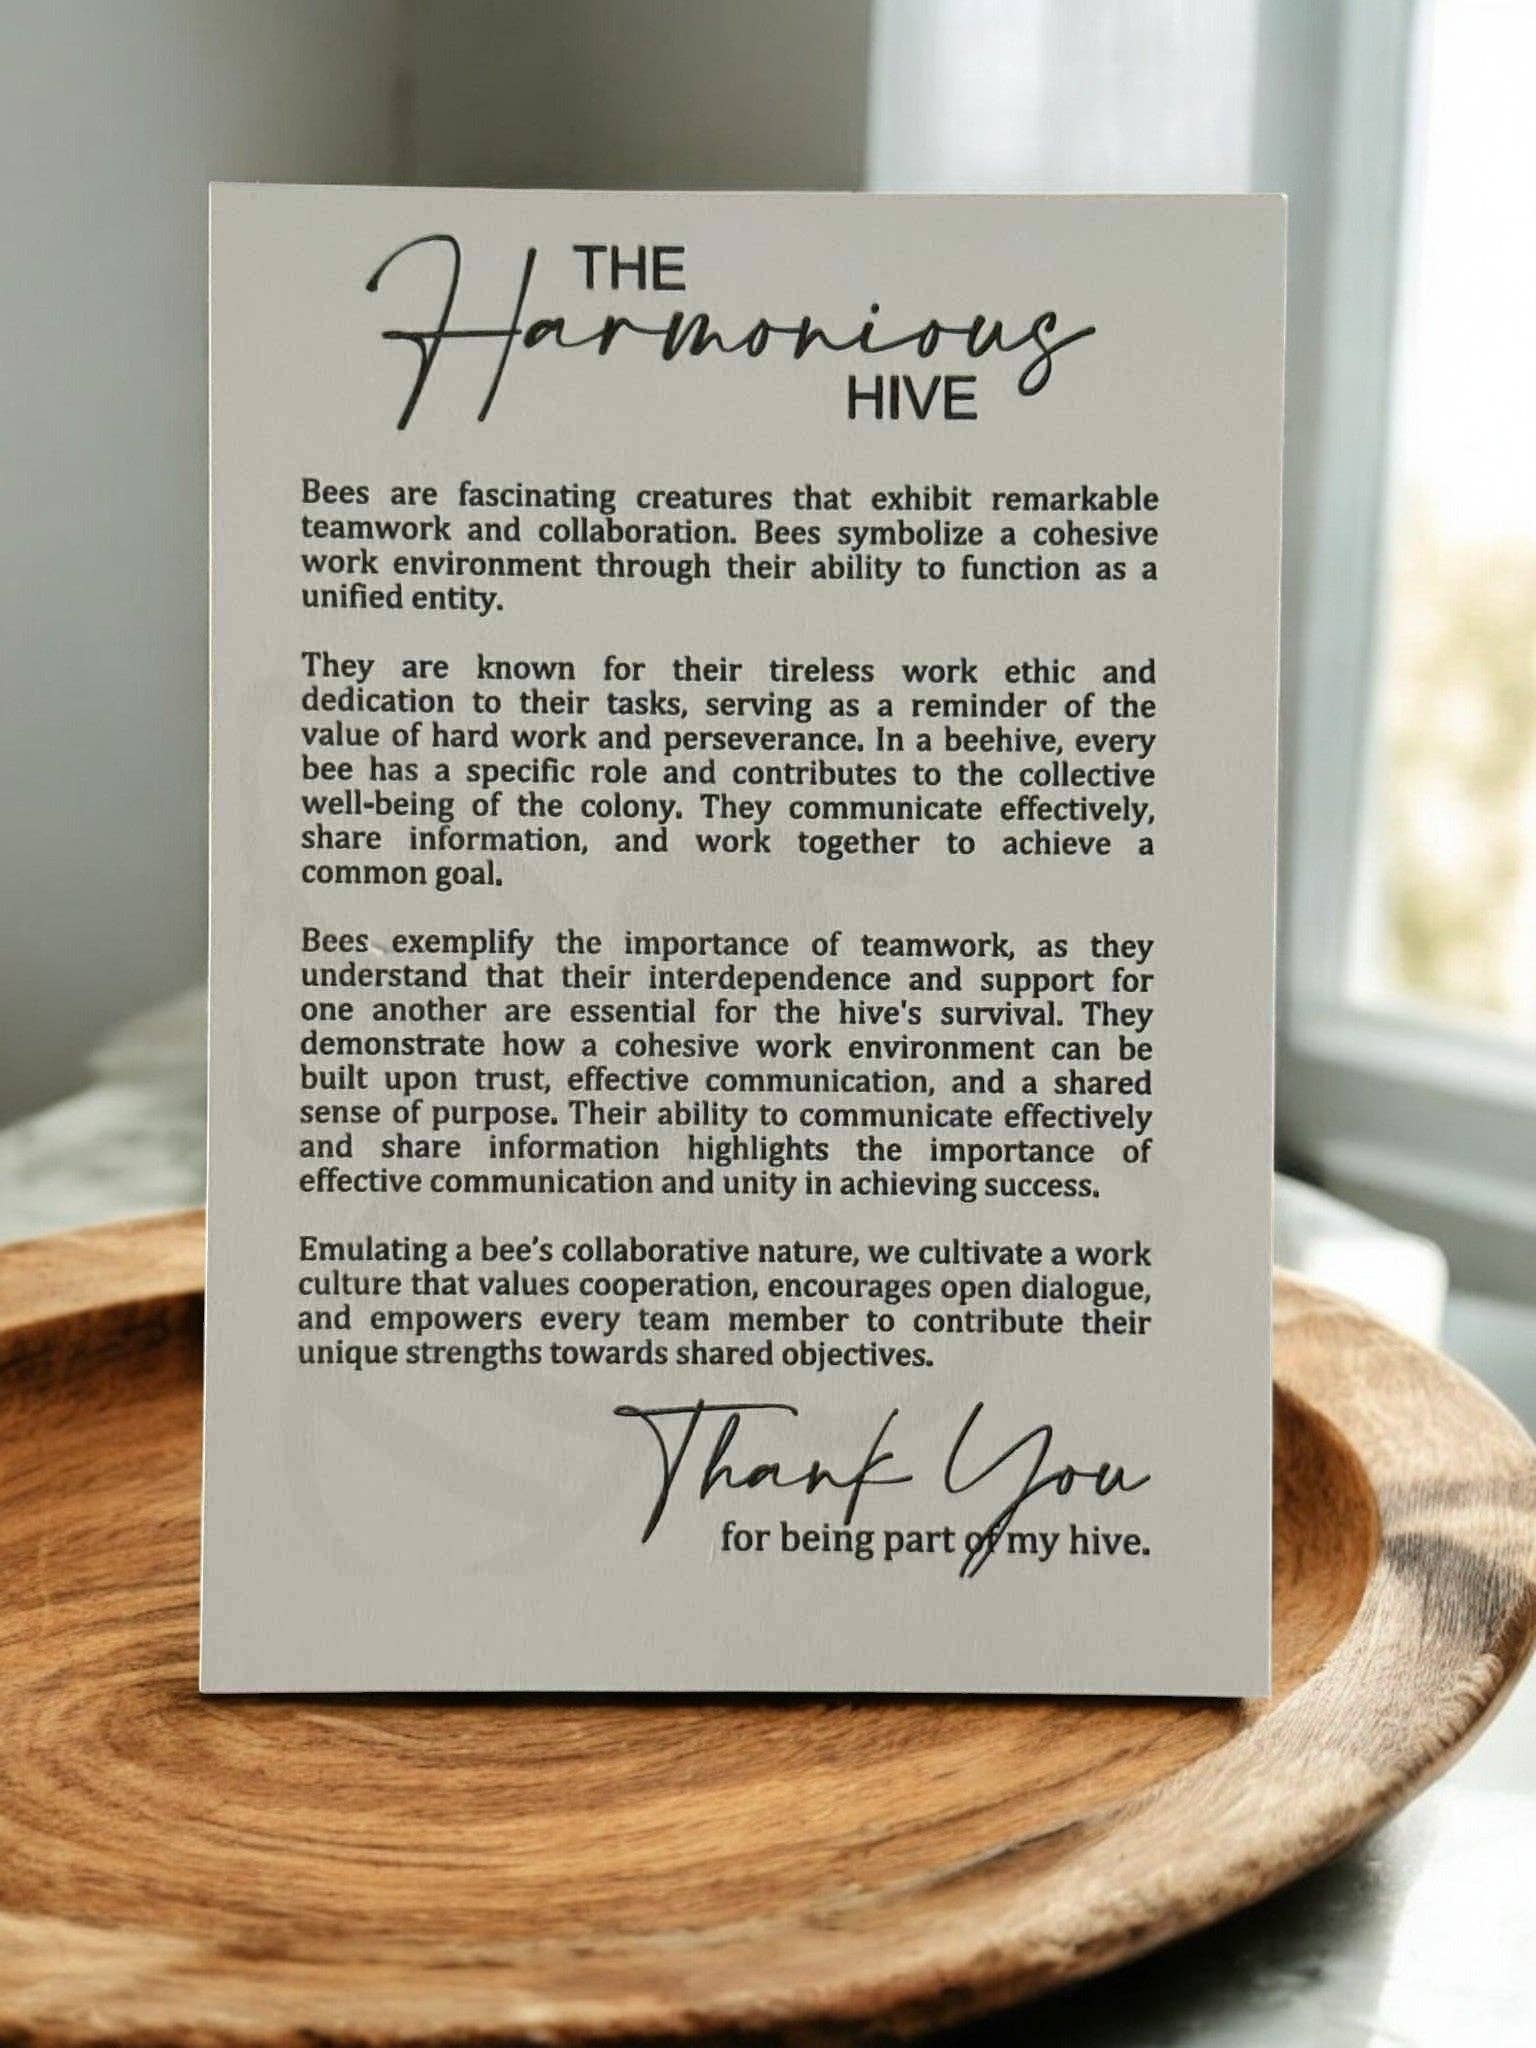 THE
Harmonious
HIVE
Bees are fascinating creatures that exhibit remarkable
teamwork and collaboration. Bees symbolize a cohesive
work environment through their ability to function as a
unified entity.
They are known for their tireless work ethic and
dedication to their tasks, serving as a reminder of the
value of hard work and perseverance. In a beehive, every
bee has a specific role and contributes to the collective
well-being of the colony. They communicate effectively,
share information, and work together to achieve a
common goal.
Bees exemplify the importance of teamwork, as they
understand that their interdependence and support for
one another are essential for the hive's survival. They
demonstrate how a cohesive work environment can be
built upon trust, effective communication, and a shared
sense of purpose. Their ability to communicate effectively
and share information highlights the importance of
effective communication and unity in achieving success.
Emulating a bee’s collaborative nature, we cultivate a work
culture that values cooperation, encourages open dialogue,
and empowers every team member to contribute their
unique strengths towards shared objectives.
Thank You
for being part of my hive.